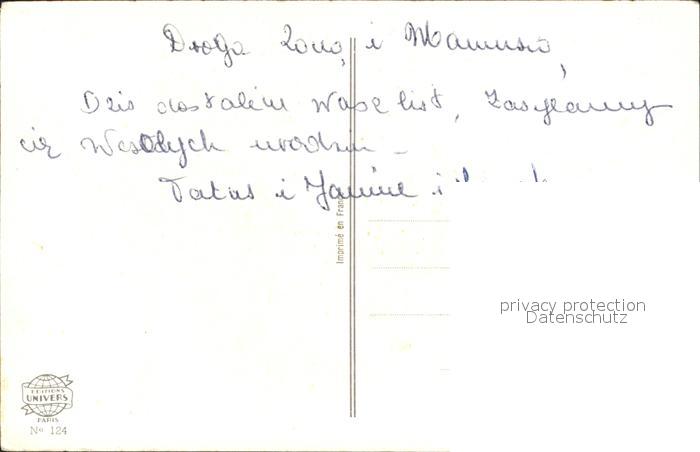 Droga Żono, i Mamusio,
Dziś dostałem Wasz list, Zasyłamy
cię Wesołych urodzin –
Tatuś i Janine i
Imprimé en Fran
privacy protection
Datenschutz
EDITIONS
UNIVERS
PARIS
No 124